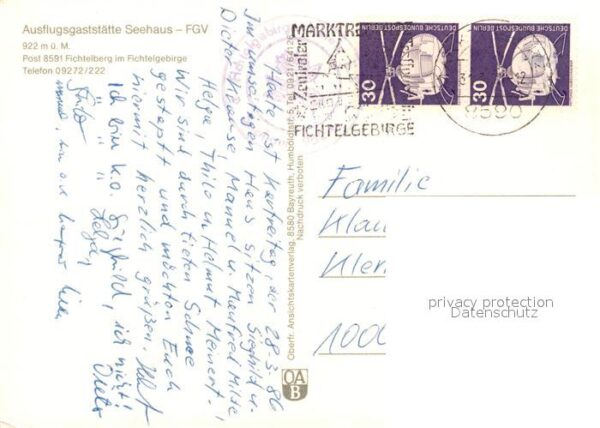 Ausflugsgaststätte Seehaus – FGV
922 m ü. M.
Post 8591 Fichtelberg im Fichtelgebirge
Telefon 09272/222
Heute ist Karfreitag, der 28.3.86
Im Haus sitzen Sieghild u.
Dieter Krause, Manuel u. Manfred
Helga, Thilo u. Helmut Meinert.
Wir sind durch tiefen Schnee
gestapft und möchten Euch
hiermit herzlich grüßen.
Ich bin k.o. Sieghild, ich nicht! Dieter
" " " Helga,
Oberfr. Ansichtskartenverlag, 8580 Bayreuth, Humboldtstr. 5, Tel. 0921/6412
Nachdruck verboten
OA
B
MARKTRE
Zentraler
FICHTELGEBIRGE
DEUTSCHE BUNDESPOST BERLIN
30
DEUTSCHE BUNDESPOST BERLIN
30
8590
Familie
Klau
1000
privacy protection
Datenschutz